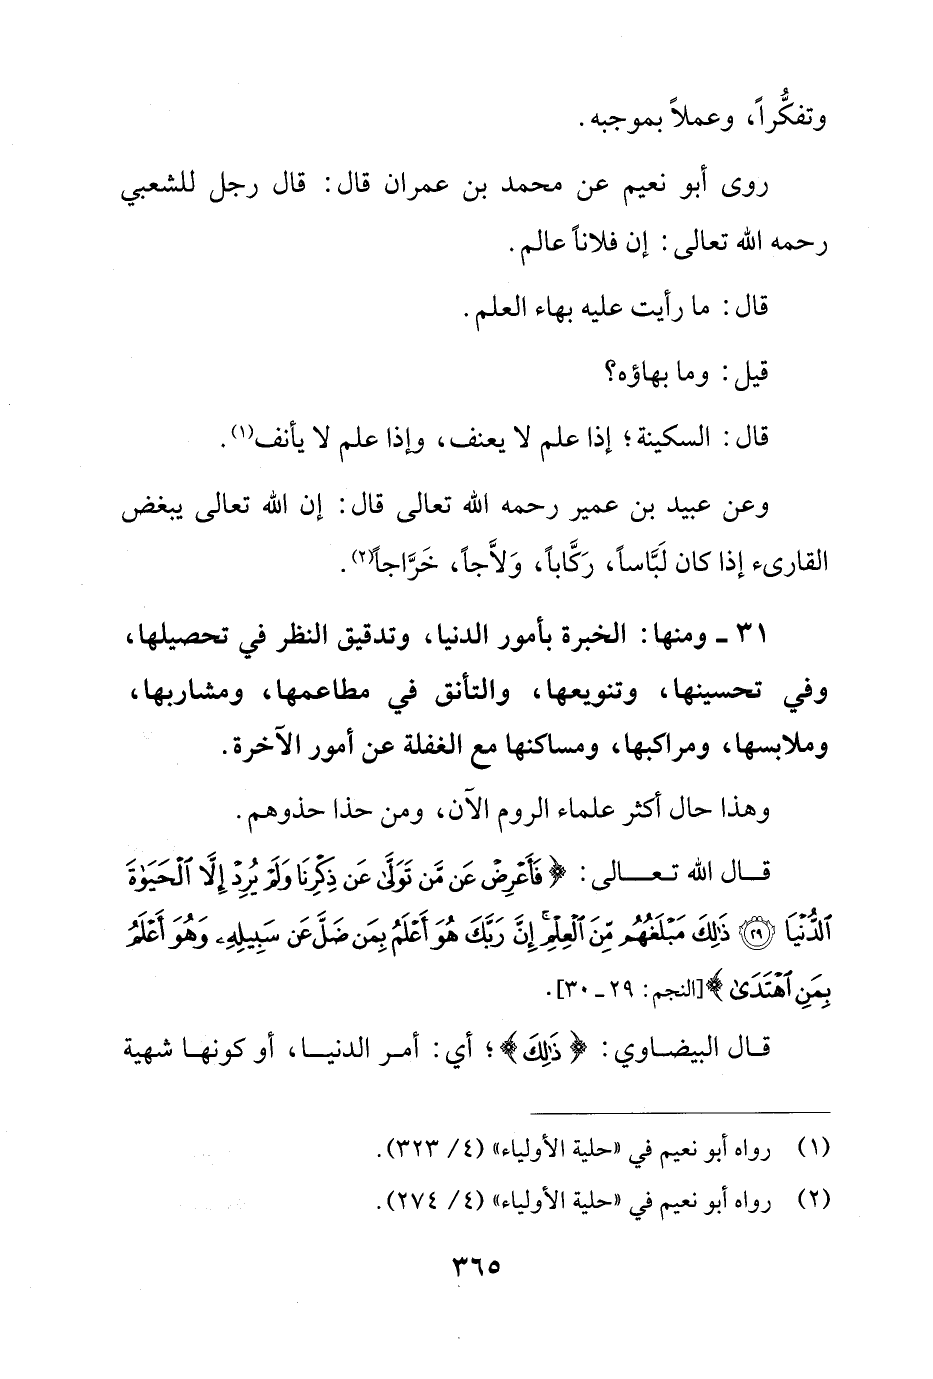 وتفكُّراً، وعملاً بموجبه.
روى أبو نعيم عن محمد بن عمران قال: قال رجل للشعبي
رحمه الله تعالى: إن فلاناً عالم.
قال: ما رأيت عليه بهاء العلم.
قيل: وما بهاؤه؟
قال: السكينة؛ إذا علم لا يعنف، وإذا علم لا يأنف(١).
وعن عبيد بن عمير رحمه الله تعالى قال: إن الله تعالى يبغض
القارىء إذا كان لَبَّاساً، رَكَّاباً، وَلاَّجاً، خَرَّاجاً(٢).
٣١ ـ ومنها: الخبرة بأمور الدنيا، وتدقيق النظر في تحصيلها،
وفي تحسينها، وتنويعها، والتأنق في مطاعمها، ومشاربها،
وملابسها، ومراكبها، ومساكنها مع الغفلة عن أمور الآخرة.
وهذا حال أكثر علماء الروم الآن، ومن حذا حذوهم.
قال الله تعالى: ﴿فَأَعْرِضْ عَن مَّن تَوَلَّىٰ عَن ذِكْرِنَا وَلَمْ يُرِدْ إِلَّا ٱلْحَيَوٰةَ
ٱلدُّنْيَا ۝٢٩ ذَٰلِكَ مَبْلَغُهُم مِّنَ ٱلْعِلْمِ ۚ إِنَّ رَبَّكَ هُوَ أَعْلَمُ بِمَن ضَلَّ عَن سَبِيلِهِۦ وَهُوَ أَعْلَمُ
بِمَنِ ٱهْتَدَىٰ﴾ [النجم: ٢٩ ـ ٣٠].
قال البيضاوي: ﴿ذَٰلِكَ﴾؛ أي: أمر الدنيا، أو كونها شهية
(١) رواه أبو نعيم في «حلية الأولياء» (٤/ ٣٢٣).
(٢) رواه أبو نعيم في «حلية الأولياء» (٤/ ٢٧٤).
٣٦٥